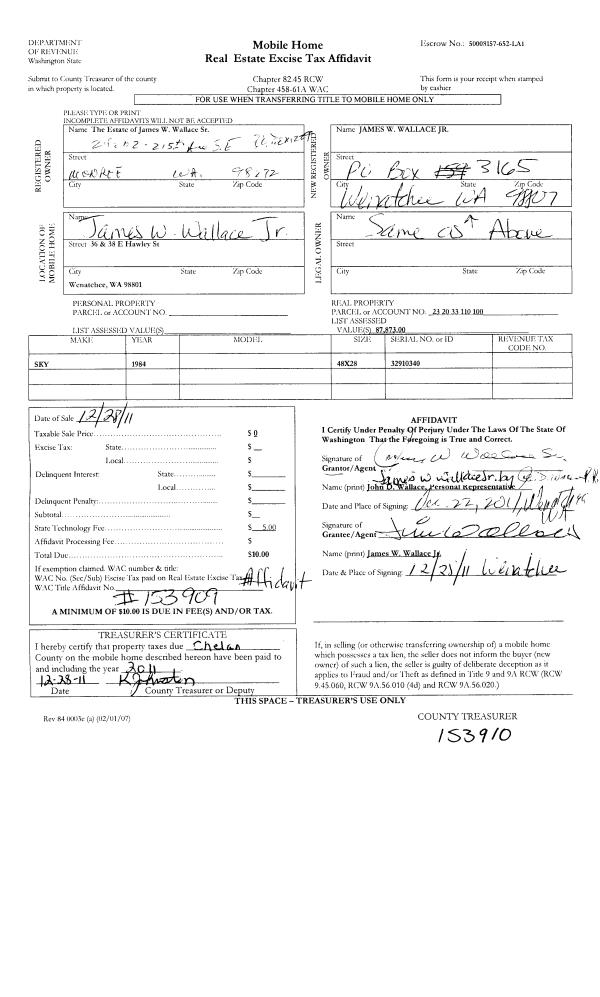 DEPARTMENT
OF REVENUE
Washington State
Mobile Home
Real Estate Excise Tax Affidavit
Escrow No.: 50008157-652-LA1
Submit to County Treasurer of the county
in which property is located.
Chapter 82.45 RCW
Chapter 458-61A WAC
This form is your receipt when stamped
by cashier
FOR USE WHEN TRANSFERRING TITLE TO MOBILE HOME ONLY
PLEASE TYPE OR PRINT
INCOMPLETE AFFIDAVITS WILL NOT BE ACCEPTED
REGISTERED
OWNER
Name The Estate of James W. Wallace Sr.
215th Ave SE
Street
MONROE WA. 98272
City State Zip Code
NEW REGISTERED
OWNER
Name JAMES W. WALLACE JR.
Street
PO Box 3165
City State Zip Code
Wenatchee WA 98807
LOCATION OF
MOBILE HOME
Name
James W. Wallace Jr.
Street 36 & 38 E Hawley St
City State Zip Code
Wenatchee, WA 98801
LEGAL OWNER
Name
Same as ↑ Above
Street
City State Zip Code
PERSONAL PROPERTY
PARCEL or ACCOUNT NO.
LIST ASSESSED VALUE(S)
REAL PROPERTY
PARCEL or ACCOUNT NO. 23 20 33 110 100
LIST ASSESSED
VALUE(S) 87,873.00
MAKE YEAR MODEL SIZE SERIAL NO. or ID REVENUE TAX
CODE NO.
SKY 1984 48X28 32910340
Date of Sale 12/28/11
Taxable Sale Price $ 0
Excise Tax: State: $
Local:
Delinquent Interest: State: $
Local: $
Delinquent Penalty: $
Subtotal: $
State Technology Fee: $ 5.00
Affidavit Processing Fee: $
Total Due: $10.00
If exemption claimed. WAC number & title:
WAC No. (Sec/Sub) Excise Tax paid on Real Estate Excise Tax Affidavit
WAC Title Affidavit No. # 153909
A MINIMUM OF $10.00 IS DUE IN FEE(S) AND/OR TAX.
AFFIDAVIT
I Certify Under Penalty Of Perjury Under The Laws Of The State Of
Washington That the Foregoing is True and Correct.
Signature of
Grantor/Agent
James W Wallace Sr. by
Name (print) John D. Wallace, Personal Representative
Date and Place of Signing: Dec. 22, 2011,
Signature of
Grantee/Agent
Name (print) James W. Wallace Jr.
Date & Place of Signing: 12/28/11 Wenatchee
TREASURER'S CERTIFICATE
I hereby certify that property taxes due Chelan
County on the mobile home described hereon have been paid to
and including the year 2011
12-28-11
Date County Treasurer or Deputy
If, in selling (or otherwise transferring ownership of) a mobile home
which possesses a tax lien, the seller does not inform the buyer (new
owner) of such a lien, the seller is guilty of deliberate deception as it
applies to Fraud and/or Theft as defined in Title 9 and 9A RCW (RCW
9.45.060, RCW 9A.56.010 (4d) and RCW 9A.56.020.)
THIS SPACE – TREASURER'S USE ONLY
Rev 84 0003c (a) (02/01/07)
COUNTY TREASURER
153910